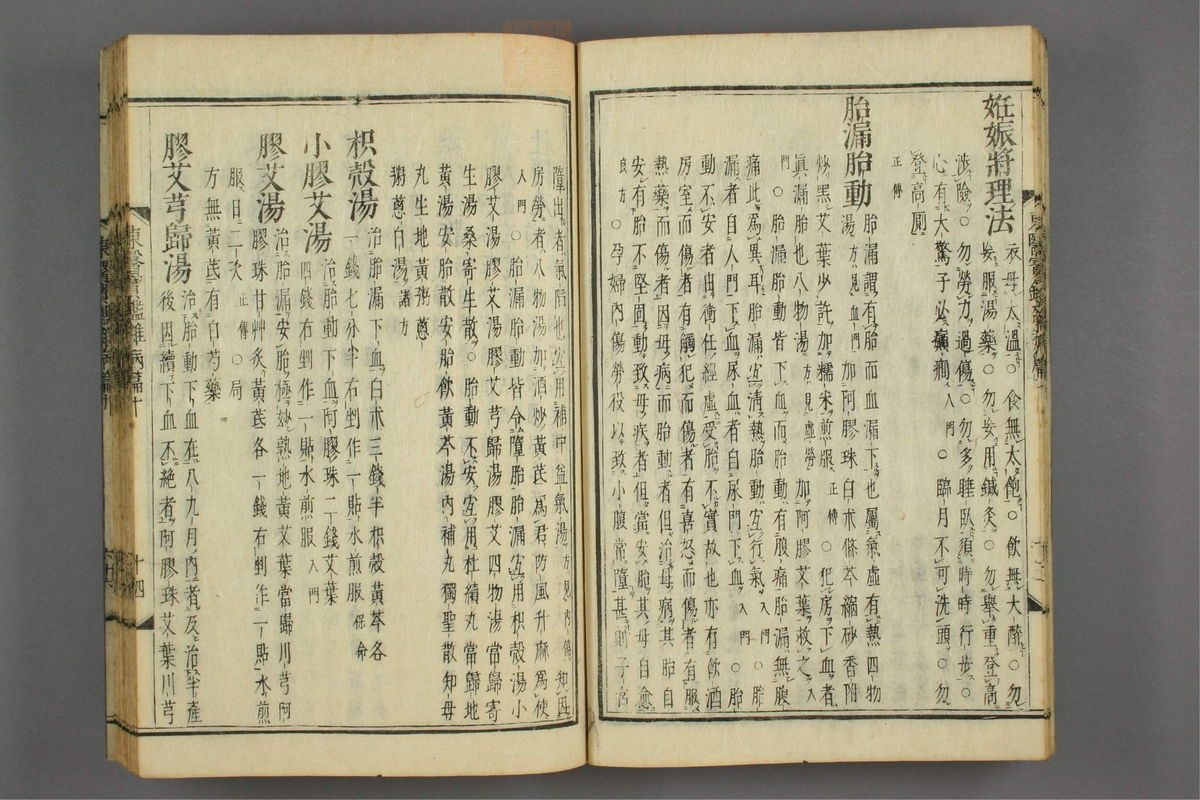 妊娠將理法
衣毋太溫○食無太飽○飲無大醉○勿
妄服湯藥○勿妄用鍼灸○勿舉重登高
涉險○勿勞力過傷○勿多睡臥須時時行步○
心有大驚子必癲癎入門○臨月不可洗頭○勿
登高圊
正傳
胎漏胎動
胎漏謂有胎而血漏下也屬氣虛有熱四物
湯方見血門加阿膠珠白朮條芩縮砂香附
炒黑艾葉少許加糯米煎服正傳○犯房下血者
眞漏胎也八物湯方見虛勞加阿膠艾葉救之入
門○胎漏胎動皆下血而胎動有腹痛胎漏無腹
痛此爲異耳胎漏宜清熱胎動宜行氣入門○胎
漏者自人門下血尿血者自尿門下血入門○胎
動不安者出衝任經虛受胎不實故也亦有飲酒
房室而傷者有觸犯而傷者有喜怒而傷者有服
熱藥而傷者因母病而胎動者但治母病其胎自
安有胎不堅固動致母病者但當安胎其母自愈
良方○孕婦內傷勞役以致小腹常墮甚則子宮
墮出者氣陷也宜用補中益氣湯方見內傷如因
房勞者八物湯加酒炒黃芪爲君防風升麻爲使
入門○胎漏胎動皆令墮胎胎漏宜用枳殼湯小
膠艾湯膠艾湯膠艾芎歸湯膠艾四物湯當歸寄
生湯桑寄生散○胎動不安宜用杜續丸當歸地
黃湯安胎散安胎飮黃芩湯內補丸獨聖散知母
丸生地黃粥葱
粥葱白湯諸方
枳殼湯
治胎漏下血白朮三錢半枳殼黃芩各
一錢七分半右剉作一貼水煎服保命
小膠艾湯
治胎動下血阿膠珠二錢艾葉
四錢右剉作一貼水煎服入門
膠艾湯
治胎漏安胎極妙熟地黃艾葉當歸川芎阿
膠珠甘艸炙黃芪各一錢右剉作一貼水煎
服日二次正傳○局
方無黃芪有白芍藥
膠艾芎歸湯
治胎動下血在八九月內者及治半產
後因續下血不絕者阿膠珠艾葉川芎